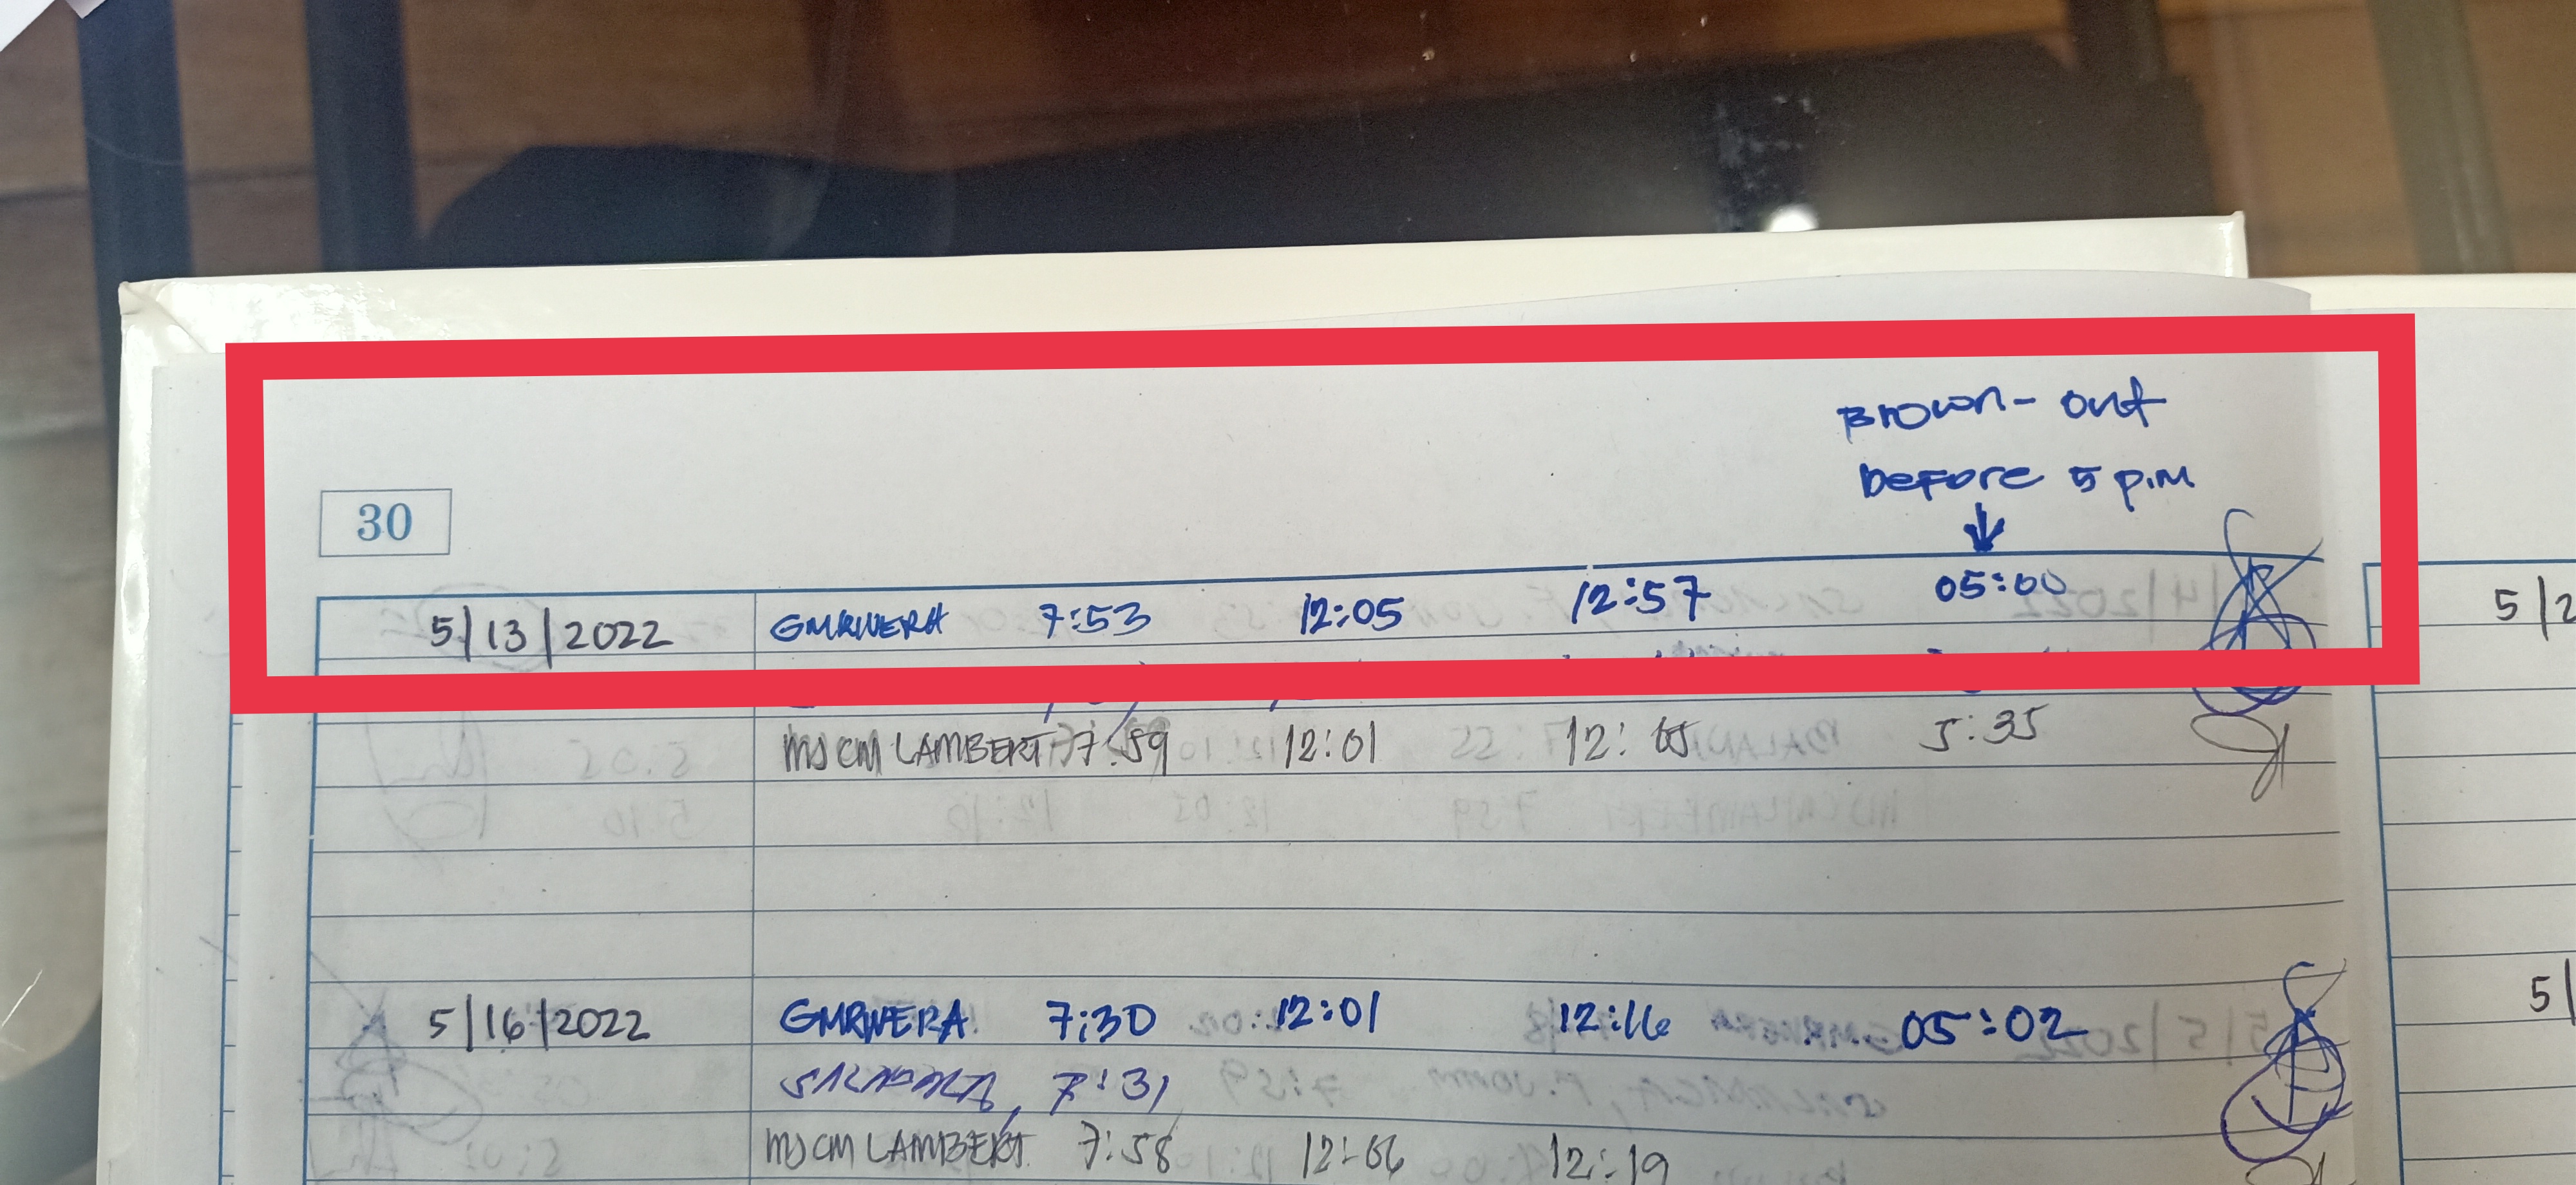 Brown-out
before 5 p.m
30
5/13/2022 GMRIVERA 7:53 12:05 12:57 05:00
MJCM LAMBERT 7:59 12:01 12:05 5:35
5/16/2022 GMRIVERA 7:30 12:01 12:16 05:02
7:31
MJCM LAMBERT 7:58 12:06 12:19
5/2
5/